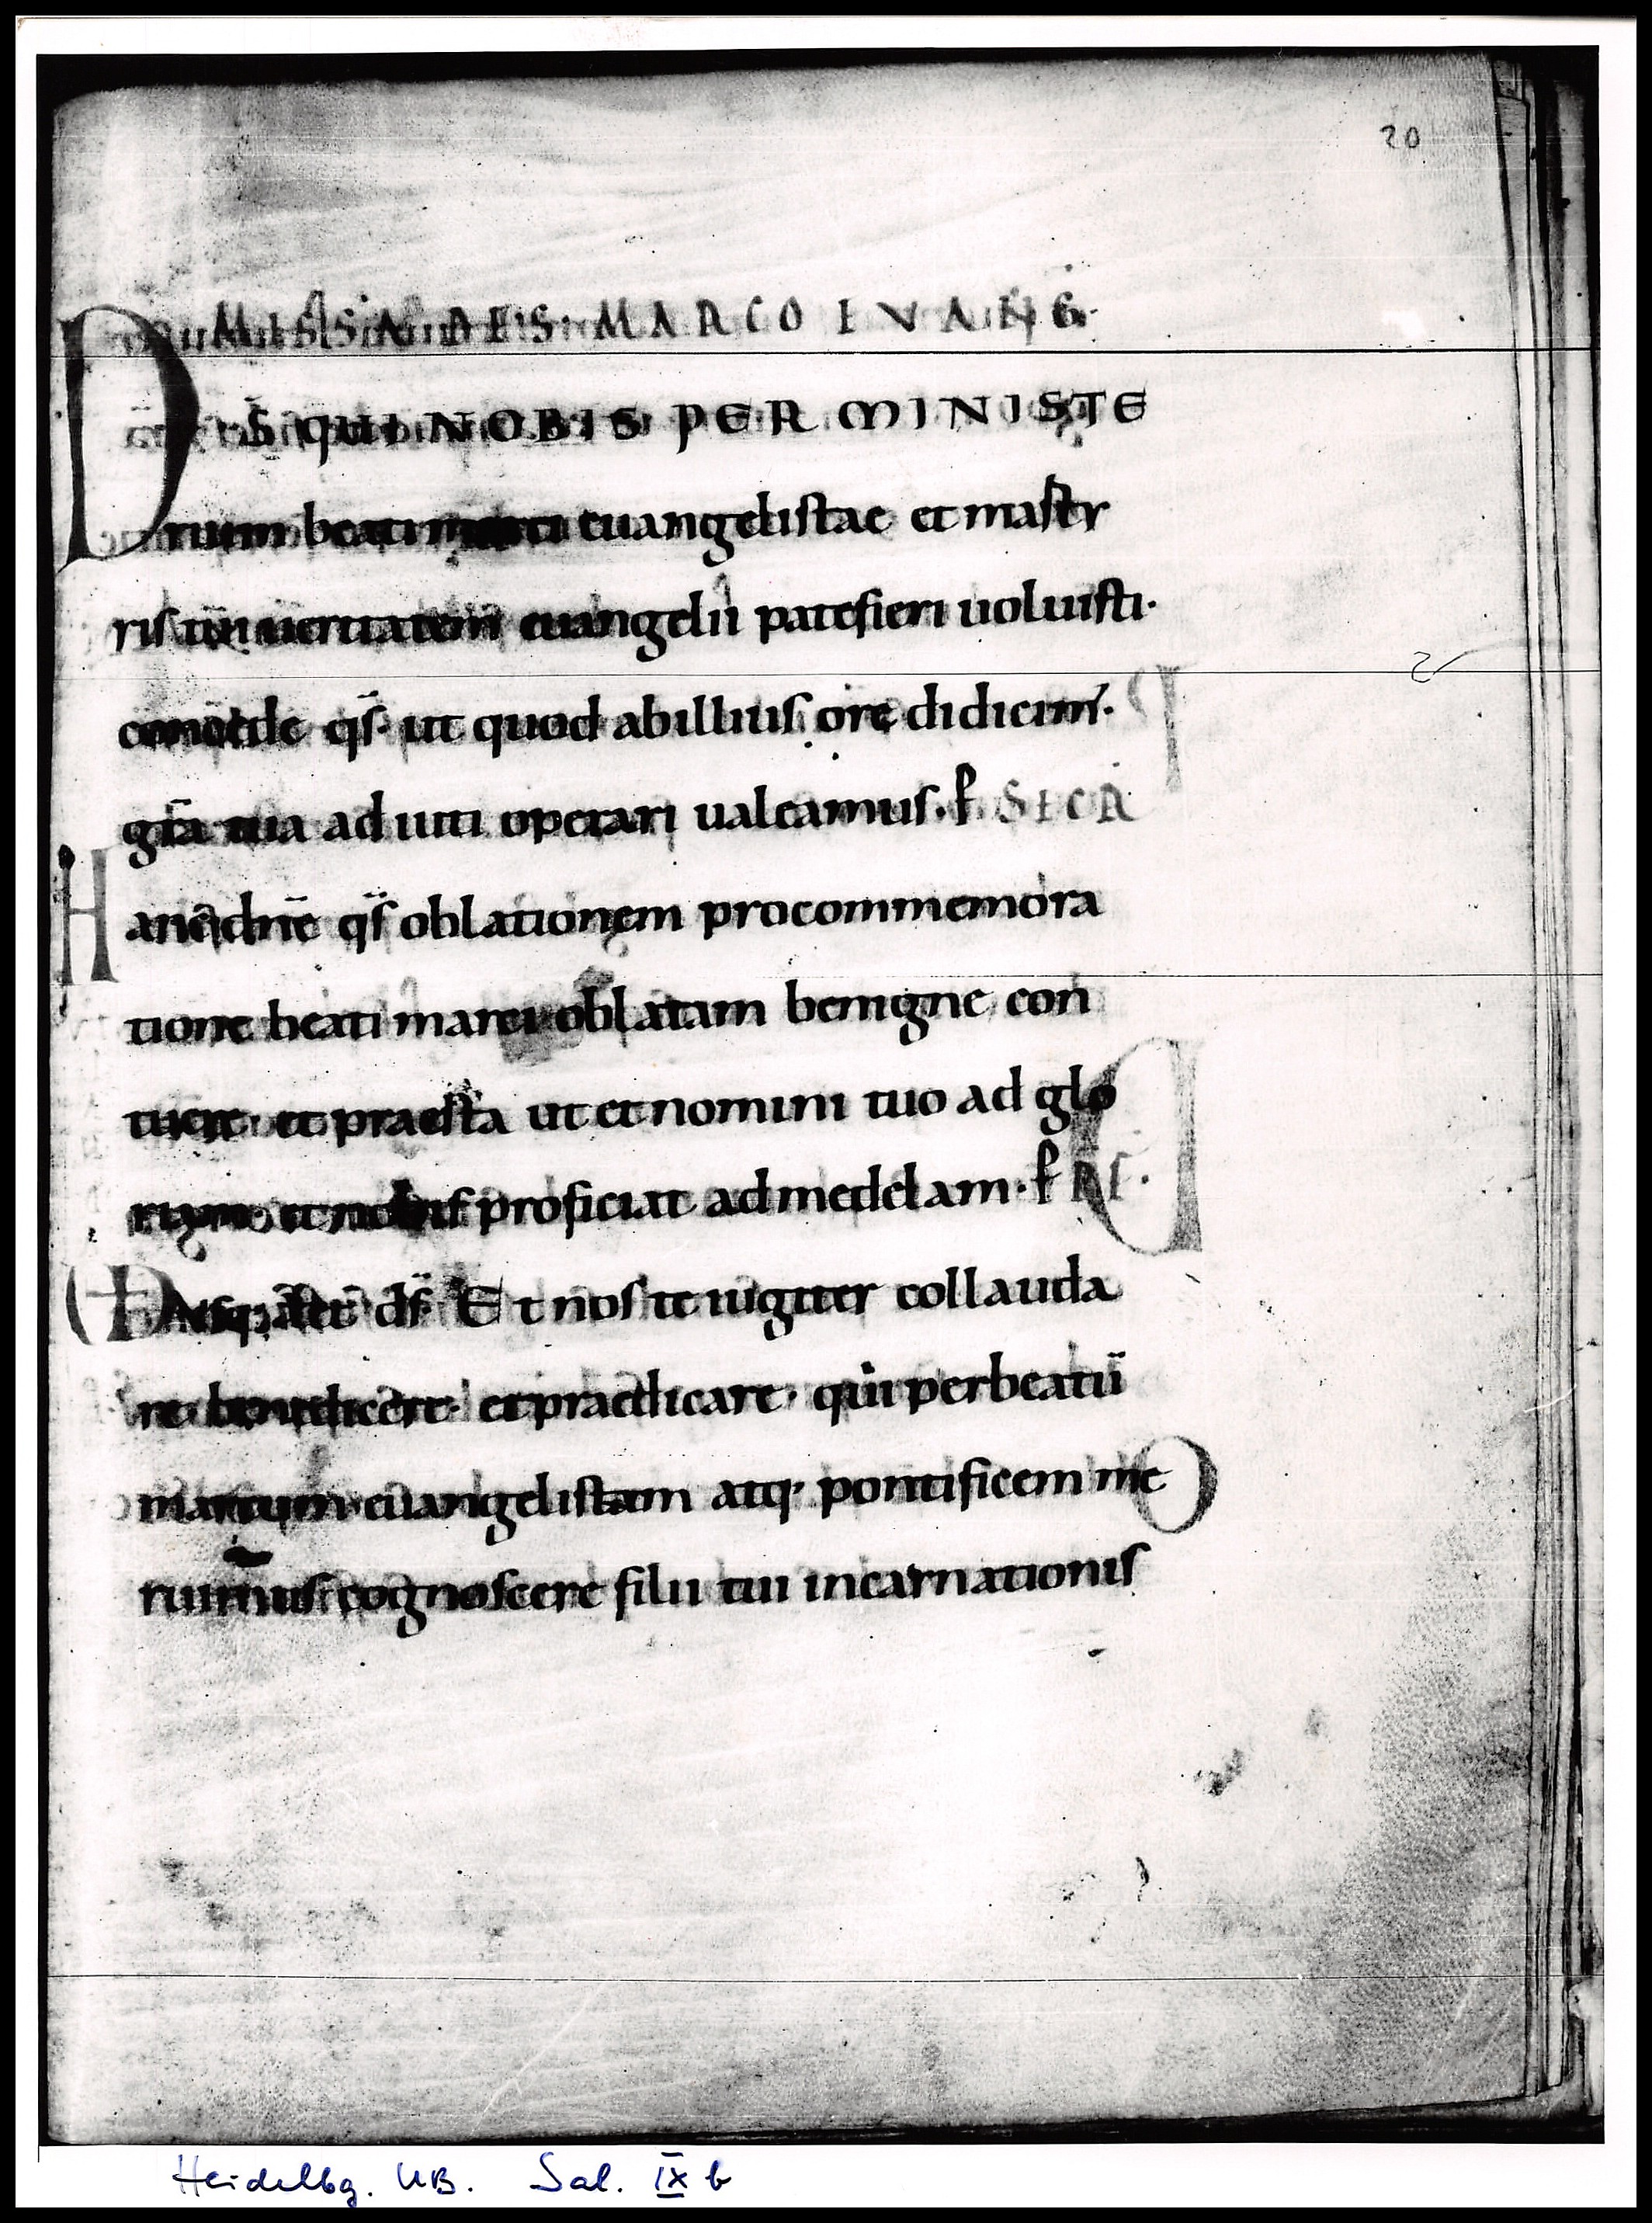 20
MISSA DE S. MARCO EVANG.
DS̄ QUI NOBIS PER MINISTE
rium beati marci euangelistae et marty
ris tui ueritatem euangelii patefieri uoluisti.
concede qs̄. ut quod ab illius ore didicim'.
gr̄a tua adiuti operari ualeamus. ꝑ SECR̄
Hanc dn̄e qs̄ oblationem pro commemora
tione beati marci oblatam benigne con
tuere. et praesta ut et nomini tuo ad glo
riam. et nobis proficiat ad medelam. ꝑ
ds̄. Et nos te iugiter collauda
re. benedicere. et praedicare. qui per beatū
marcum. euangelistam atq. pontificem me
ruimus cognoscere filii tui incarnationis
Heidelbg. UB. Sal. IX b